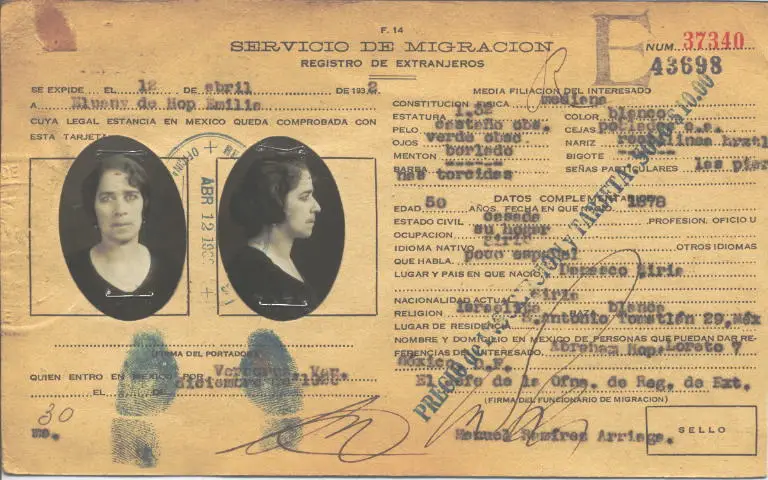 F. 14
SERVICIO DE MIGRACION
REGISTRO DE EXTRANJEROS
E NUM. 37340
43698
SE EXPIDE EL 12 DE abril DE 1932
A Elueny de Hop Emilia
CUYA LEGAL ESTANCIA EN MEXICO QUEDA COMPROBADA CON
ESTA TARJETA
ABR 12 193
(FIRMA DEL PORTADOR)
QUIEN ENTRO EN MEXICO POR Veracruz, Ver.
EL DE diciembre de
30
me.
MEDIA FILIACION DEL INTERESADO
CONSTITUCION FISICA mediana
ESTATURA 1.52 COLOR blanco
PELO castaño obs. CEJAS
OJOS verde obsc NARIZ
MENTON borlado BIGOTE ------
BARBA ------ SEÑAS PARTICULARES las pier
nas torcidas
DATOS COMPLEMENTARIOS
EDAD 50 AÑOS. FECHA EN QUE NACIO 1878
ESTADO CIVIL casada PROFESION, OFICIO U
OCUPACION su hogar
IDIOMA NATIVO sirio OTROS IDIOMAS
QUE HABLA. poco español
LUGAR Y PAIS EN QUE NACIO. Damasco Siria
NACIONALIDAD ACTUAL Siria
RELIGION israelita blanca
LUGAR DE RESIDENCIA S. Antonio Tomatlán 29, Méx
NOMBRE Y DOMICILIO EN MEXICO DE PERSONAS QUE PUEDAN DAR RE-
FERENCIAS DEL INTERESADO. Abraham Hop. Loreto 7
México D. F.
El Jefe de la Ofna. de Reg. de Ext.
(FIRMA DEL FUNCIONARIO DE MIGRACION)
Manuel Ramírez Arriaga.
SELLO
PRECIO Y TARJETA: SOLO $10.00